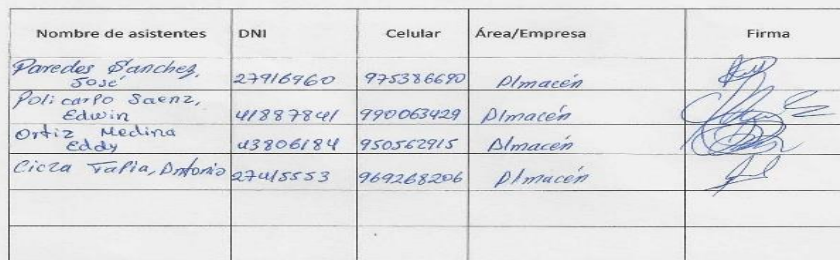 Nombre de asistentes DNI Celular Área/Empresa Firma
Paredes Sanchez,
José 27916960 975386690 Almacén
Policarpo Saenz,
Edwin 41887841 990063429 Almacén
Ortiz Medina
Eddy 43806184 950562915 Almacén
Cieza Tapia, Antonio 27415553 969268206 Almacén